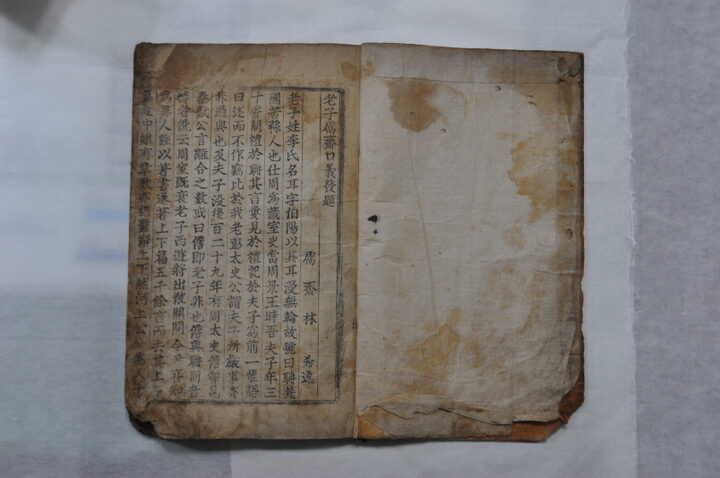 老子鬳齋口義發題
鬳齋林 希逸
老子姓李氏名耳字伯陽以其耳漫無輪故號曰聃楚
國苦縣人也仕周爲藏室史當周景王時吾夫子年三
十嘗問禮於聃其言豊見於禮記於夫子爲前一輩語
曰述而不作竊比於我老彭太史公謂夫子所嚴事亦
非過與也及夫子沒後百二十九年有周太史儋嘗見
秦獻公言離合之數或曰儋即老子非也儋與聃同音
者訛云周室旣衰老子西遊將出散關關令尹喜知
爲異人強以著書遂著上下篇五千餘言而去其上
下 雖有章數亦猶繫辭上下然河上公